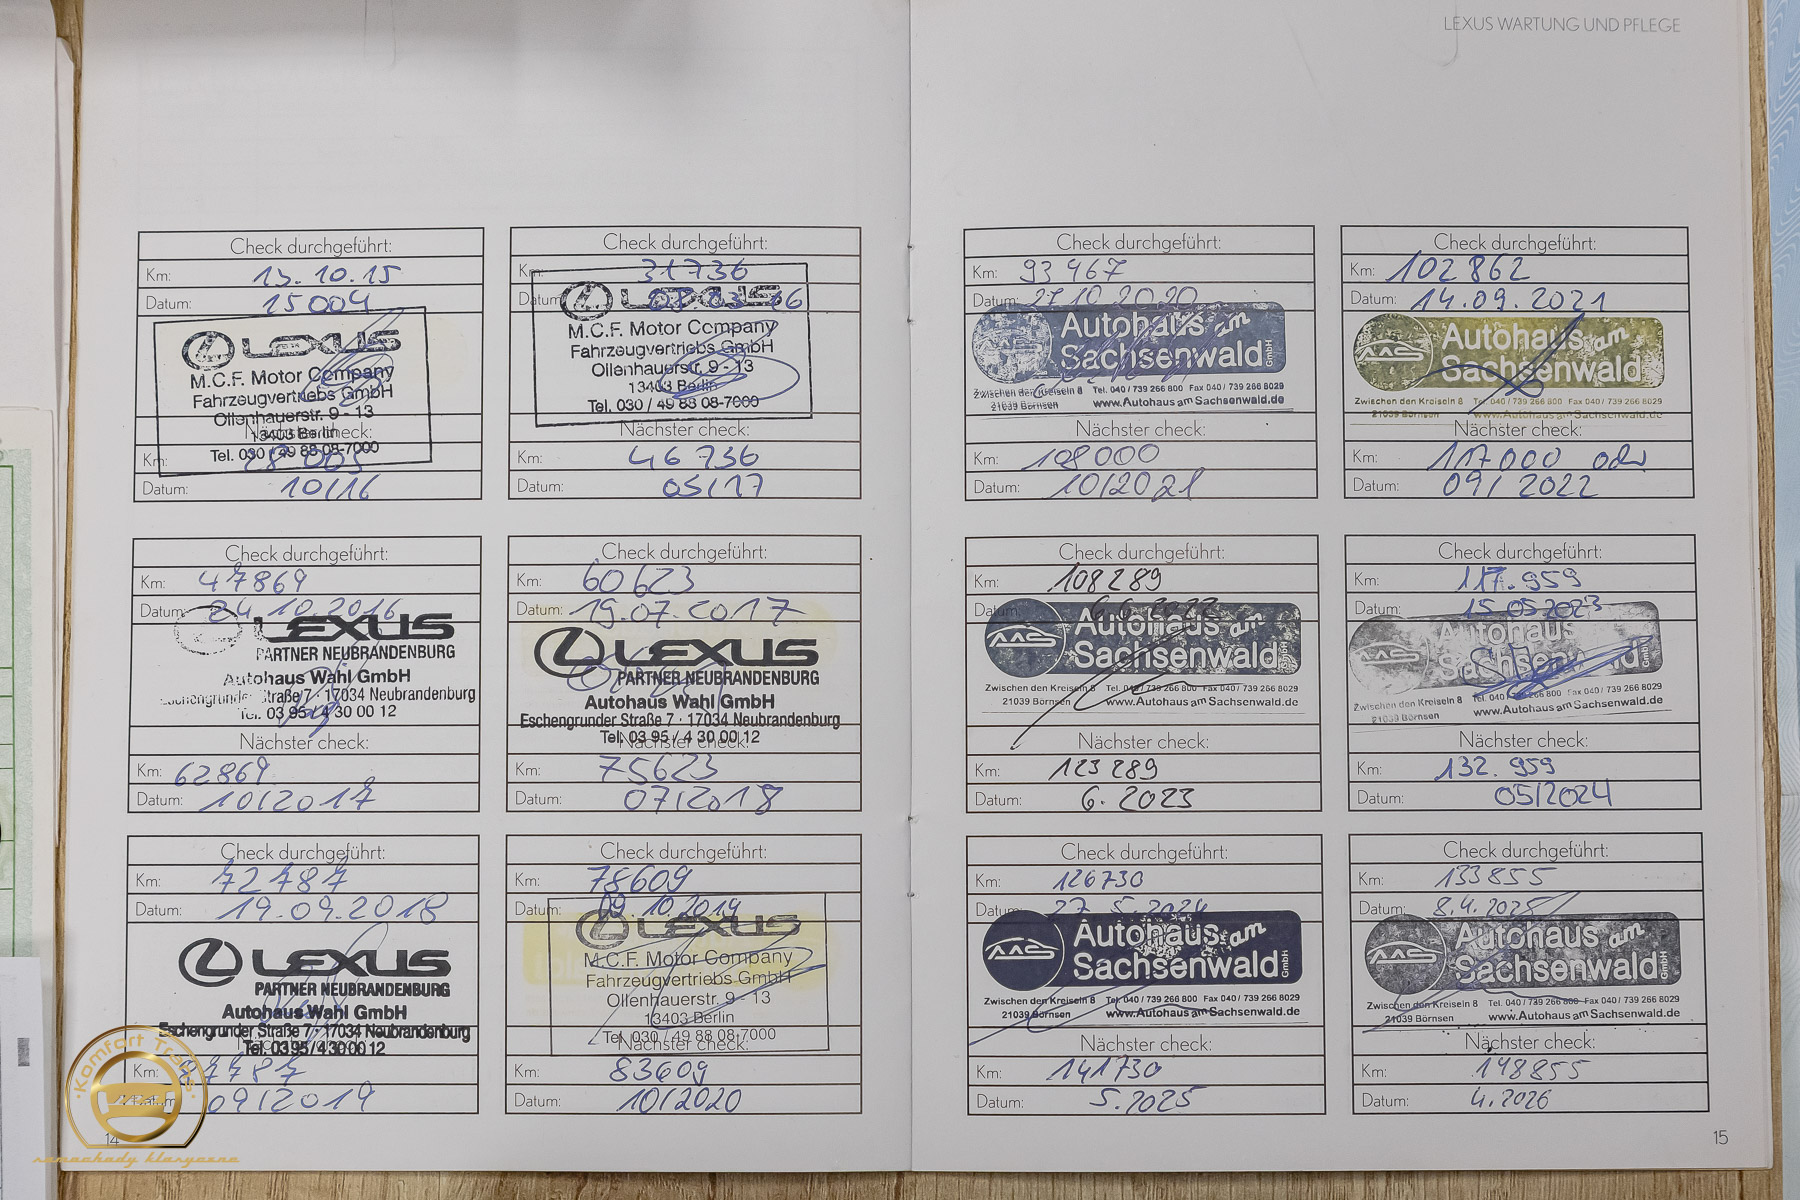 LEXUS WARTUNG UND PFLEGE
Check durchgeführt:
Km: 13.10.15
Datum: 15004
LEXUS
M.C.F. Motor Company
Fahrzeugvertriebs GmbH
Ollenhauerstr. 9 - 13
13403 Berlin
Tel. 030 / 49 88 08-7000
Nächster check:
Km:
Datum: 10/16
Check durchgeführt:
Km: 31736
Datum:
LEXUS
M.C.F. Motor Company
Fahrzeugvertriebs GmbH
Ollenhauerstr. 9 - 13
13403 Berlin
Tel. 030 / 49 88 08-7000
Nächster check:
Km: 46736
Datum: 05/17
Check durchgeführt:
Km: 47869
Datum: 24.10.2016
LEXUS
PARTNER NEUBRANDENBURG
Autohaus Wahl GmbH
Eschengrunder Straße 7 · 17034 Neubrandenburg
Tel. 03 95 / 4 30 00 12
Nächster check:
Km: 62869
Datum: 10/2017
Check durchgeführt:
Km: 60623
Datum: 19.07.2017
LEXUS
PARTNER NEUBRANDENBURG
Autohaus Wahl GmbH
Eschengrunder Straße 7 · 17034 Neubrandenburg
Tel. 03 95 / 4 30 00 12
Nächster check:
Km: 75623
Datum: 07/2018
Check durchgeführt:
Km: 72787
Datum: 19.09.2018
LEXUS
PARTNER NEUBRANDENBURG
Autohaus Wahl GmbH
Eschengrunder Straße 7 · 17034 Neubrandenburg
Tel. 03 95 / 4 30 00 12
Km: 87787
Datum: 09/2019
Check durchgeführt:
Km: 78609
Datum: 09.10.2019
LEXUS
M.C.F. Motor Company
Fahrzeugvertriebs GmbH
Ollenhauerstr. 9 - 13
13403 Berlin
Tel. 030 / 49 88 08-7000
Nächster check:
Km: 83609
Datum: 10/2020
14
Check durchgeführt:
Km: 93467
Datum: 27.10.2020
Autohaus am
Sachsenwald GmbH
Zwischen den Kreiseln 8 Tel. 040 / 739 266 800 Fax 040 / 739 266 8029
21039 Börnsen www.Autohaus am Sachsenwald.de
Nächster check:
Km: 108000
Datum: 10/2021
Check durchgeführt:
Km: 102862
Datum: 14.09.2021
Autohaus am
Sachsenwald GmbH
Zwischen den Kreiseln 8 Tel. 040 / 739 266 800 Fax 040 / 739 266 8029
21039 Börnsen www.Autohaus am Sachsenwald.de
Nächster check:
Km: 117000 oder
Datum: 09/2022
Check durchgeführt:
Km: 108289
Datum: 6.6.2022
Autohaus am
Sachsenwald GmbH
Zwischen den Kreiseln 8 Tel. 040 / 739 266 800 Fax 040 / 739 266 8029
21039 Börnsen www.Autohaus am Sachsenwald.de
Nächster check:
Km: 123289
Datum: 6.2023
Check durchgeführt:
Km: 117.959
Datum: 15.05.2023
Autohaus
Sachsenwald GmbH
Zwischen den Kreiseln 8 Tel. 040 / 739 266 800 Fax 040 / 739 266 8029
21039 Börnsen www.Autohaus am Sachsenwald.de
Nächster check:
Km: 132.959
Datum: 05/2024
Check durchgeführt:
Km: 126730
Datum: 27.5.2024
Autohaus am
Sachsenwald GmbH
Zwischen den Kreiseln 8 Tel. 040 / 739 266 800 Fax 040 / 739 266 8029
21039 Börnsen www.Autohaus am Sachsenwald.de
Nächster check:
Km: 141730
Datum: 5.2025
Check durchgeführt:
Km: 133855
Datum: 8.4.2025
Autohaus am
Sachsenwald GmbH
Zwischen den Kreiseln 8 Tel. 040 / 739 266 800 Fax 040 / 739 266 8029
21039 Börnsen www.Autohaus am Sachsenwald.de
Nächster check:
Km: 148855
Datum: 4.2026
15
Komfort Trans
samochody klasyczne